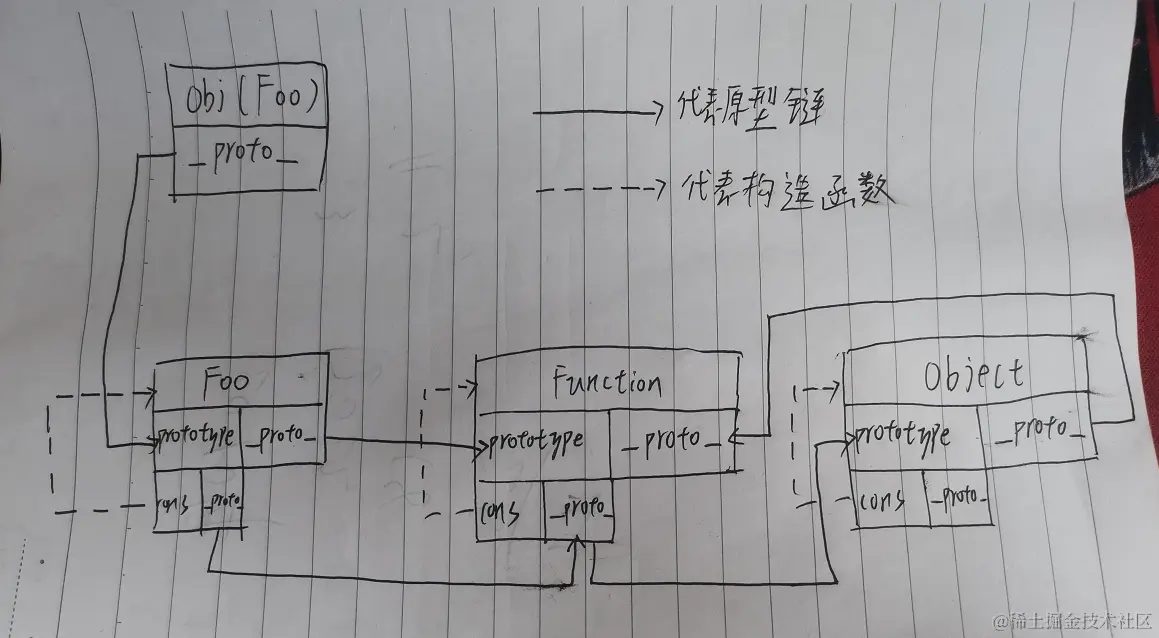 Obj (Foo)
_proto_
代表原型链
代表构造函数
Foo
prototype
_proto_
cons
_proto_
Function
prototype
_proto_
cons
_proto_
Object
prototype
_proto_
cons
_proto_
@稀土掘金技术社区